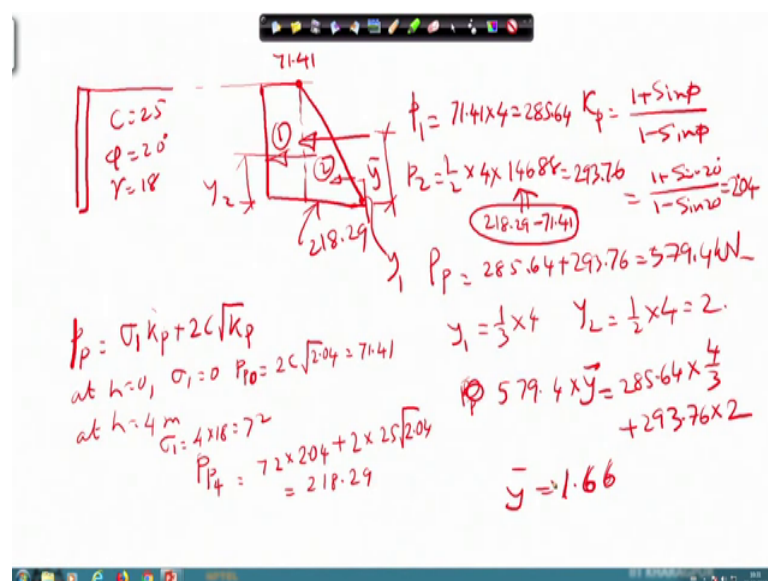 71.41
C=25
φ=20°
γ=18
①
②
y₂
ȳ
218.29
y₁
P₁ = 71.41×4=285.64
Kₚ = (1+Sinφ)/(1-Sinφ)
P₂=½ × 4× 146.88=293.76
= (1+Sin20°)/(1-Sin20)=2.04
218.29-71.41
Pₚ = 285.64+293.76=579.4kN
y₁ = ⅓×4 y₂ = ½×4=2.
579.4×ȳ=285.64×4/3
+293.76×2
ȳ=1.66
pₚ = σ₁Kₚ+2C√Kₚ
at h=0, σ₁=0 Pₚ₀= 2C√2.04 = 71.41
at h=4m
σ₁=4×18=72
Pₚ₄ = 72×2.04+2×25√2.04
= 218.29